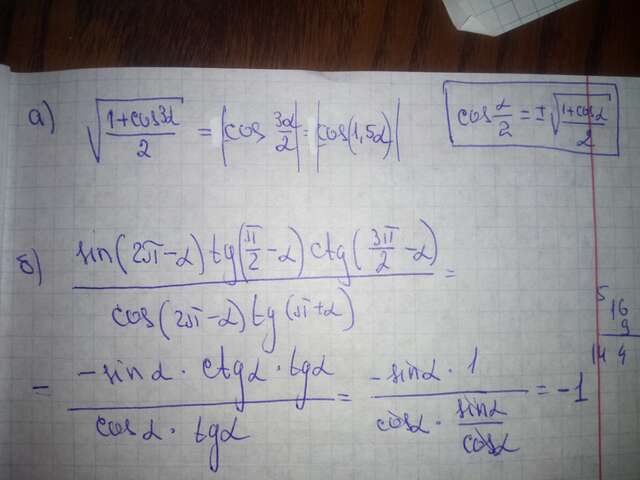 а) √((1+cos3α)/2) = |cos 3α/2| = |cos(1,5α)|
cos α/2 = ±√((1+cosα)/2)
б) (sin(2π-α) tg(π/2-α) ctg(3π/2-α)) / (cos(2π-α) tg(π+α)) =
= (-sinα · ctgα · tgα) / (cosα · tgα) = (-sinα · 1) / (cosα · sinα/cosα) = -1
5
16
9
144